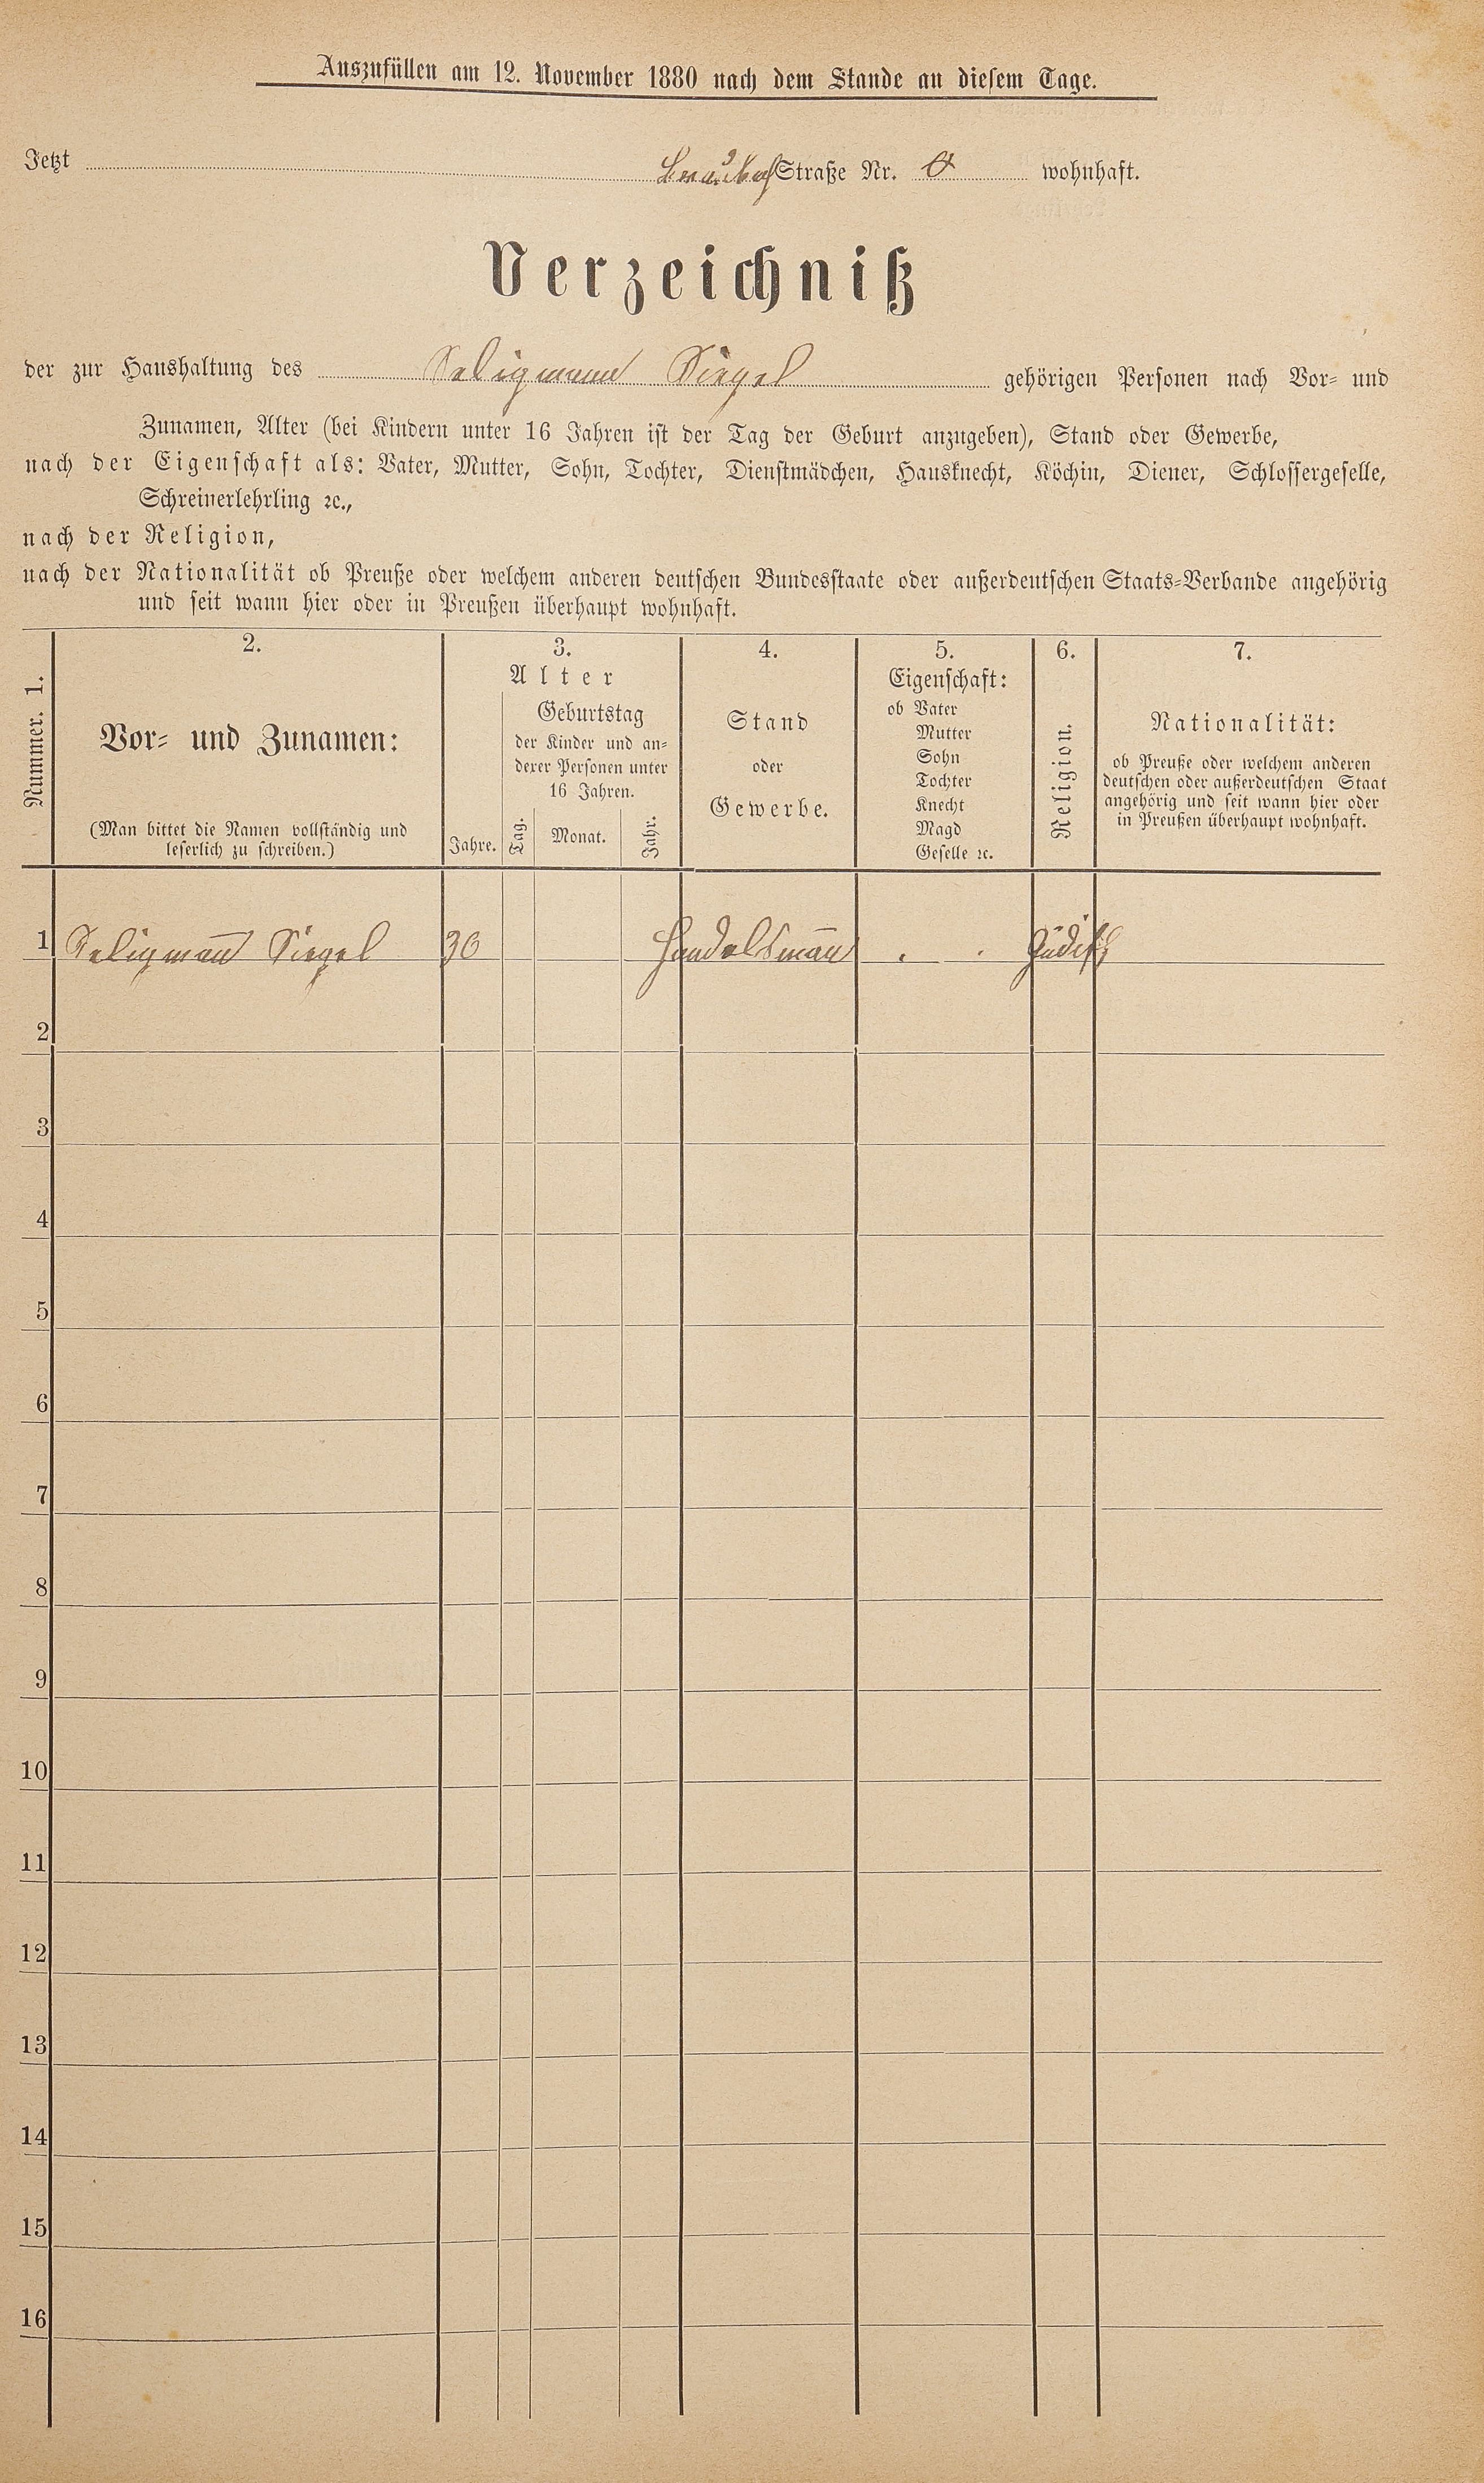 Auszufüllen am 12. November 1880 nach dem Stande an diesem Tage.
Jetzt Straße Nr. wohnhaft.
Verzeichniß
der zur Haushaltung des Seligmann Siegel gehörigen Personen nach Vor- und
Zunamen, Alter (bei Kindern unter 16 Jahren ist der Tag der Geburt anzugeben), Stand oder Gewerbe,
nach der Eigenschaft als: Vater, Mutter, Sohn, Tochter, Dienstmädchen, Hausknecht, Köchin, Diener, Schlossergeselle,
Schreinerlehrling ꝛc.,
nach der Religion,
nach der Nationalität ob Preuße oder welchem anderen deutschen Bundesstaate oder außerdeutschen Staats-Verbande angehörig
und seit wann hier oder in Preußen überhaupt wohnhaft.
Nummer. 1.
2.
Vor- und Zunamen:
(Man bittet die Namen vollständig und
leserlich zu schreiben.)
3.
Alter
Jahre.
Geburtstag
der Kinder und an-
derer Personen unter
16 Jahren.
Tag.
Monat.
Jahr.
4.
Stand
oder
Gewerbe.
5.
Eigenschaft:
ob Vater
Mutter
Sohn
Tochter
Knecht
Magd
Geselle ꝛc.
6.
Religion.
7.
Nationalität:
ob Preuße oder welchem anderen
deutschen oder außerdeutschen Staat
angehörig und seit wann hier oder
in Preußen überhaupt wohnhaft.
1 Seligman̅ Siegel 30 Handelsman̅ Jüdisch
2
3
4
5
6
7
8
9
10
11
12
13
14
15
16